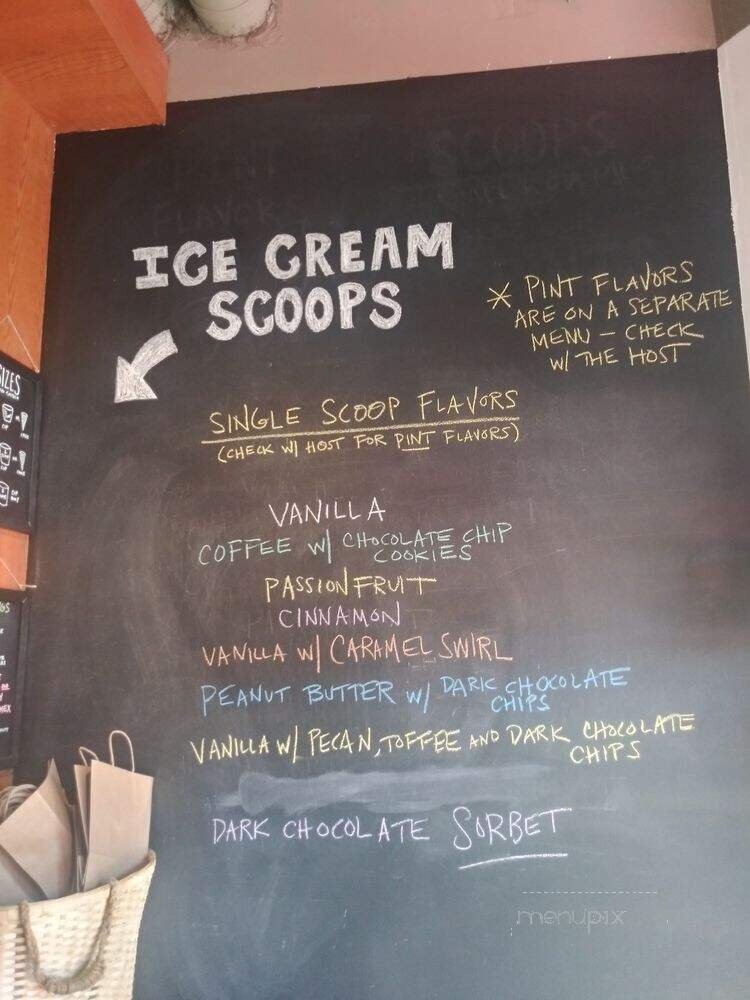 ICE CREAM
SCOOPS
* PINT FLAVORS
ARE ON A SEPARATE
MENU – CHECK
W/ THE HOST
SINGLE SCOOP FLAVORS
(CHECK W/ HOST FOR PINT FLAVORS)
VANILLA
COFFEE W/ CHOCOLATE CHIP
COOKIES
PASSIONFRUIT
CINNAMON
VANILLA W/ CARAMEL SWIRL
PEANUT BUTTER W/ DARK CHOCOLATE
CHIPS
VANILLA W/ PECAN, TOFFEE AND DARK CHOCOLATE
CHIPS
DARK CHOCOLATE SORBET
SIZES
CUP
menupix